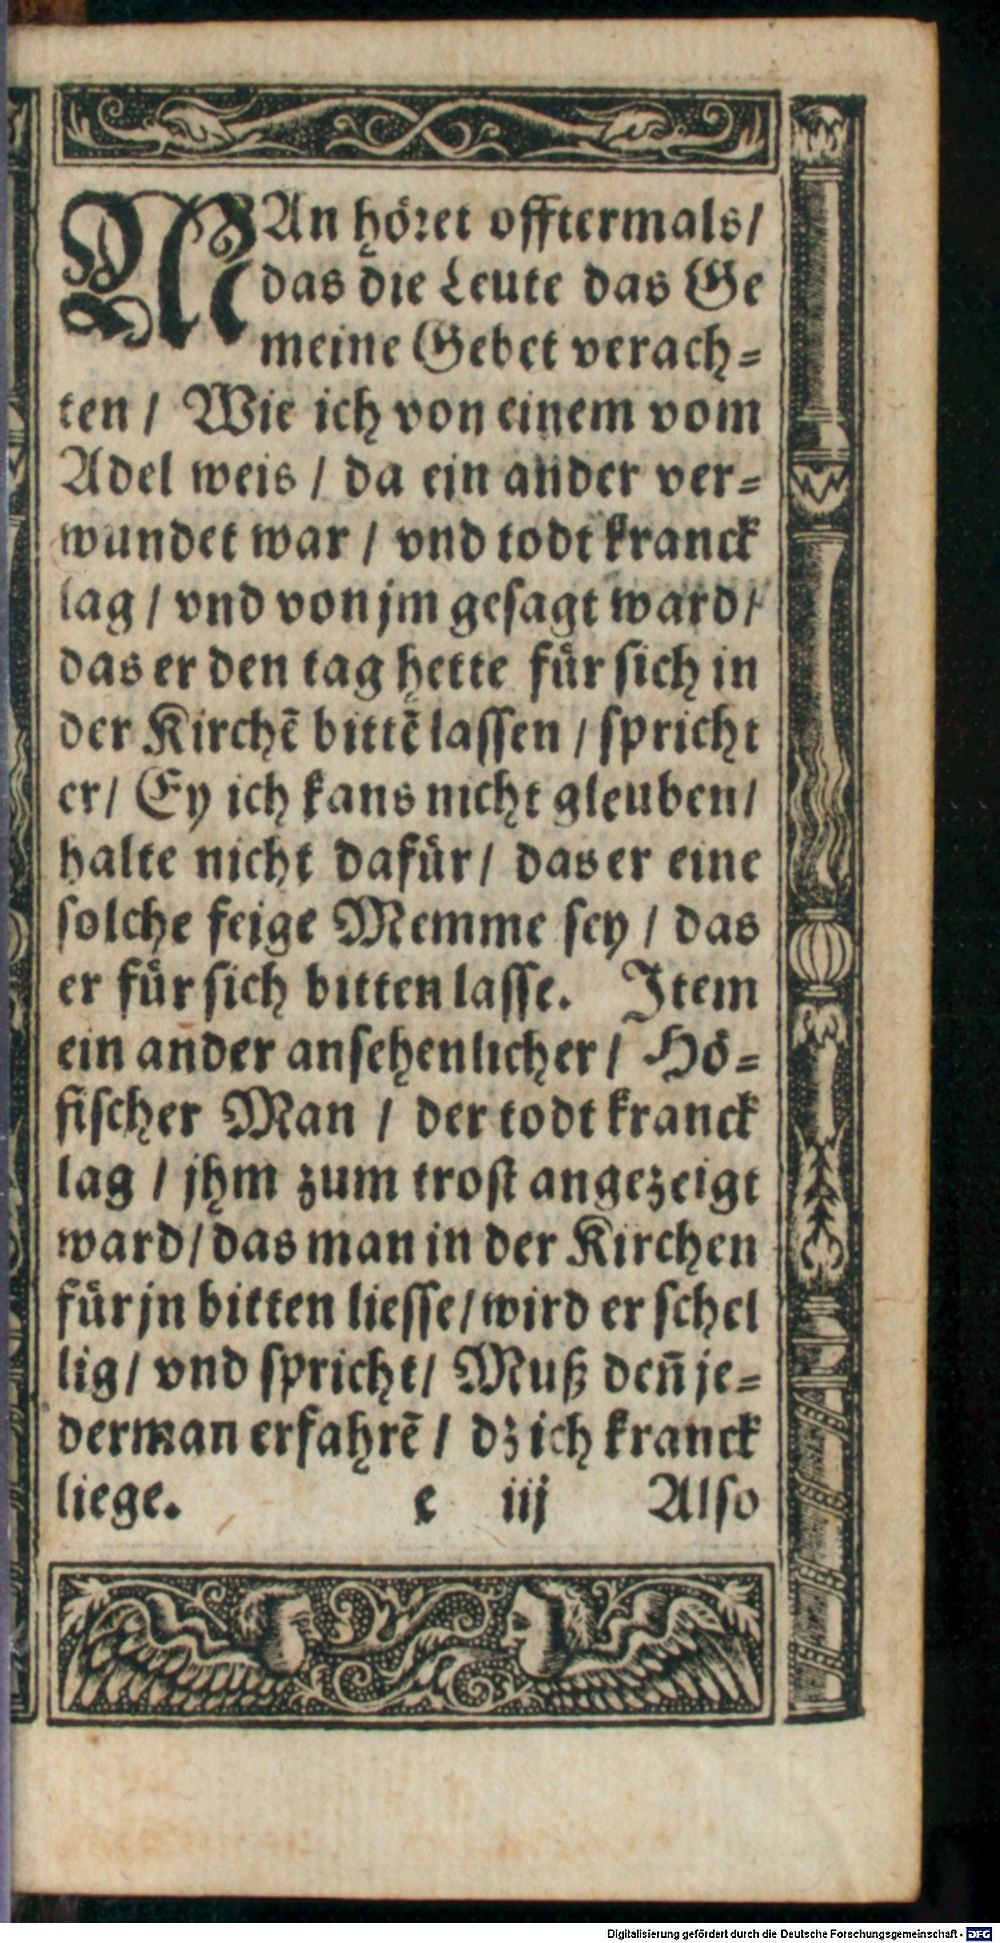 MAn höret offtermals/
das die Leute das Ge
meine Gebet verach=
ten / Wie ich von einem vom
Adel weis / da ein ander ver=
wundet war / vnd todt kranck
lag / vnd von jm gesagt ward/
das er den tag hette für sich in
der Kirchẽ bittẽ lassen / spricht
er/ Ey ich kans nicht gleuben/
halte nicht dafür/ das er eine
solche feige Memme sey / das
er für sich bitten lasse. Item
ein ander ansehenlicher/ Hö=
fischer Man / der todt kranck
lag / jhm zum trost angezeigt
ward/das man in der Kirchen
für jn bitten liesse/wird er schel
lig/ vnd spricht/ Muß deñ je=
derman erfahrẽ / dz ich kranck
liege. e iij Also
Digitalisierung gefördert durch die Deutsche Forschungsgemeinschaft - DFG